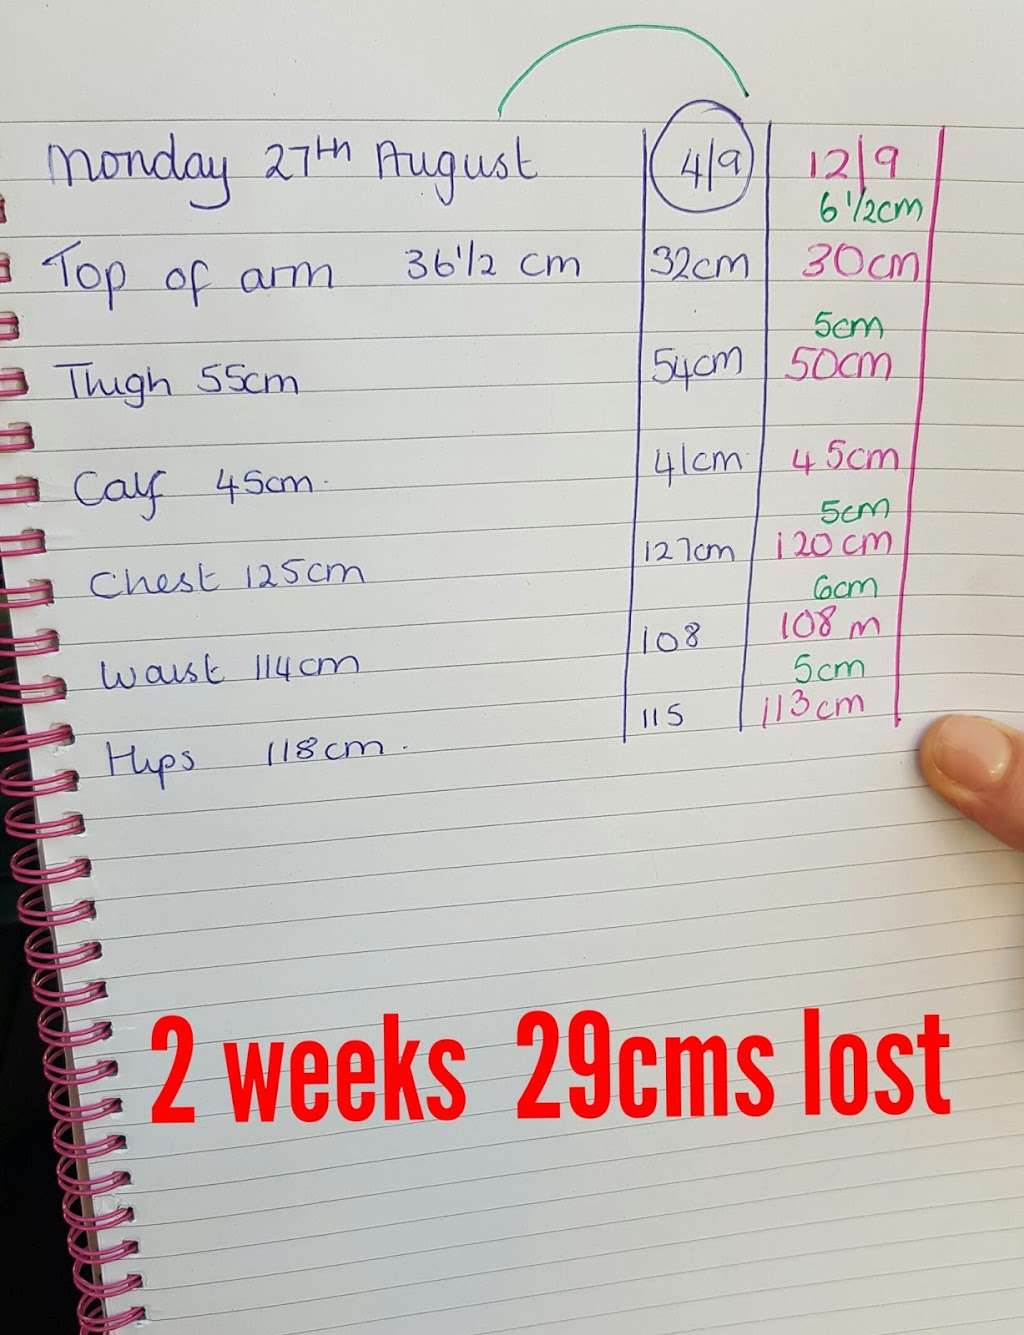 Monday 27th August 4/9 12/9
6 1/2cm
Top of arm 36 1/2 cm 32cm 30cm
5cm
Thigh 55cm 54cm 50cm
Calf 45cm. 41cm 45cm
5cm
Chest 125cm 127cm 120cm
6cm
Waist 114cm 108 108 m
5cm
Hips 118cm. 115 113cm
2 weeks 29cms lost